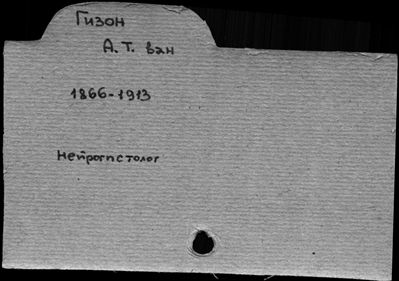 Гизон
А. Т. ван
1866-1913
нейрогистолог